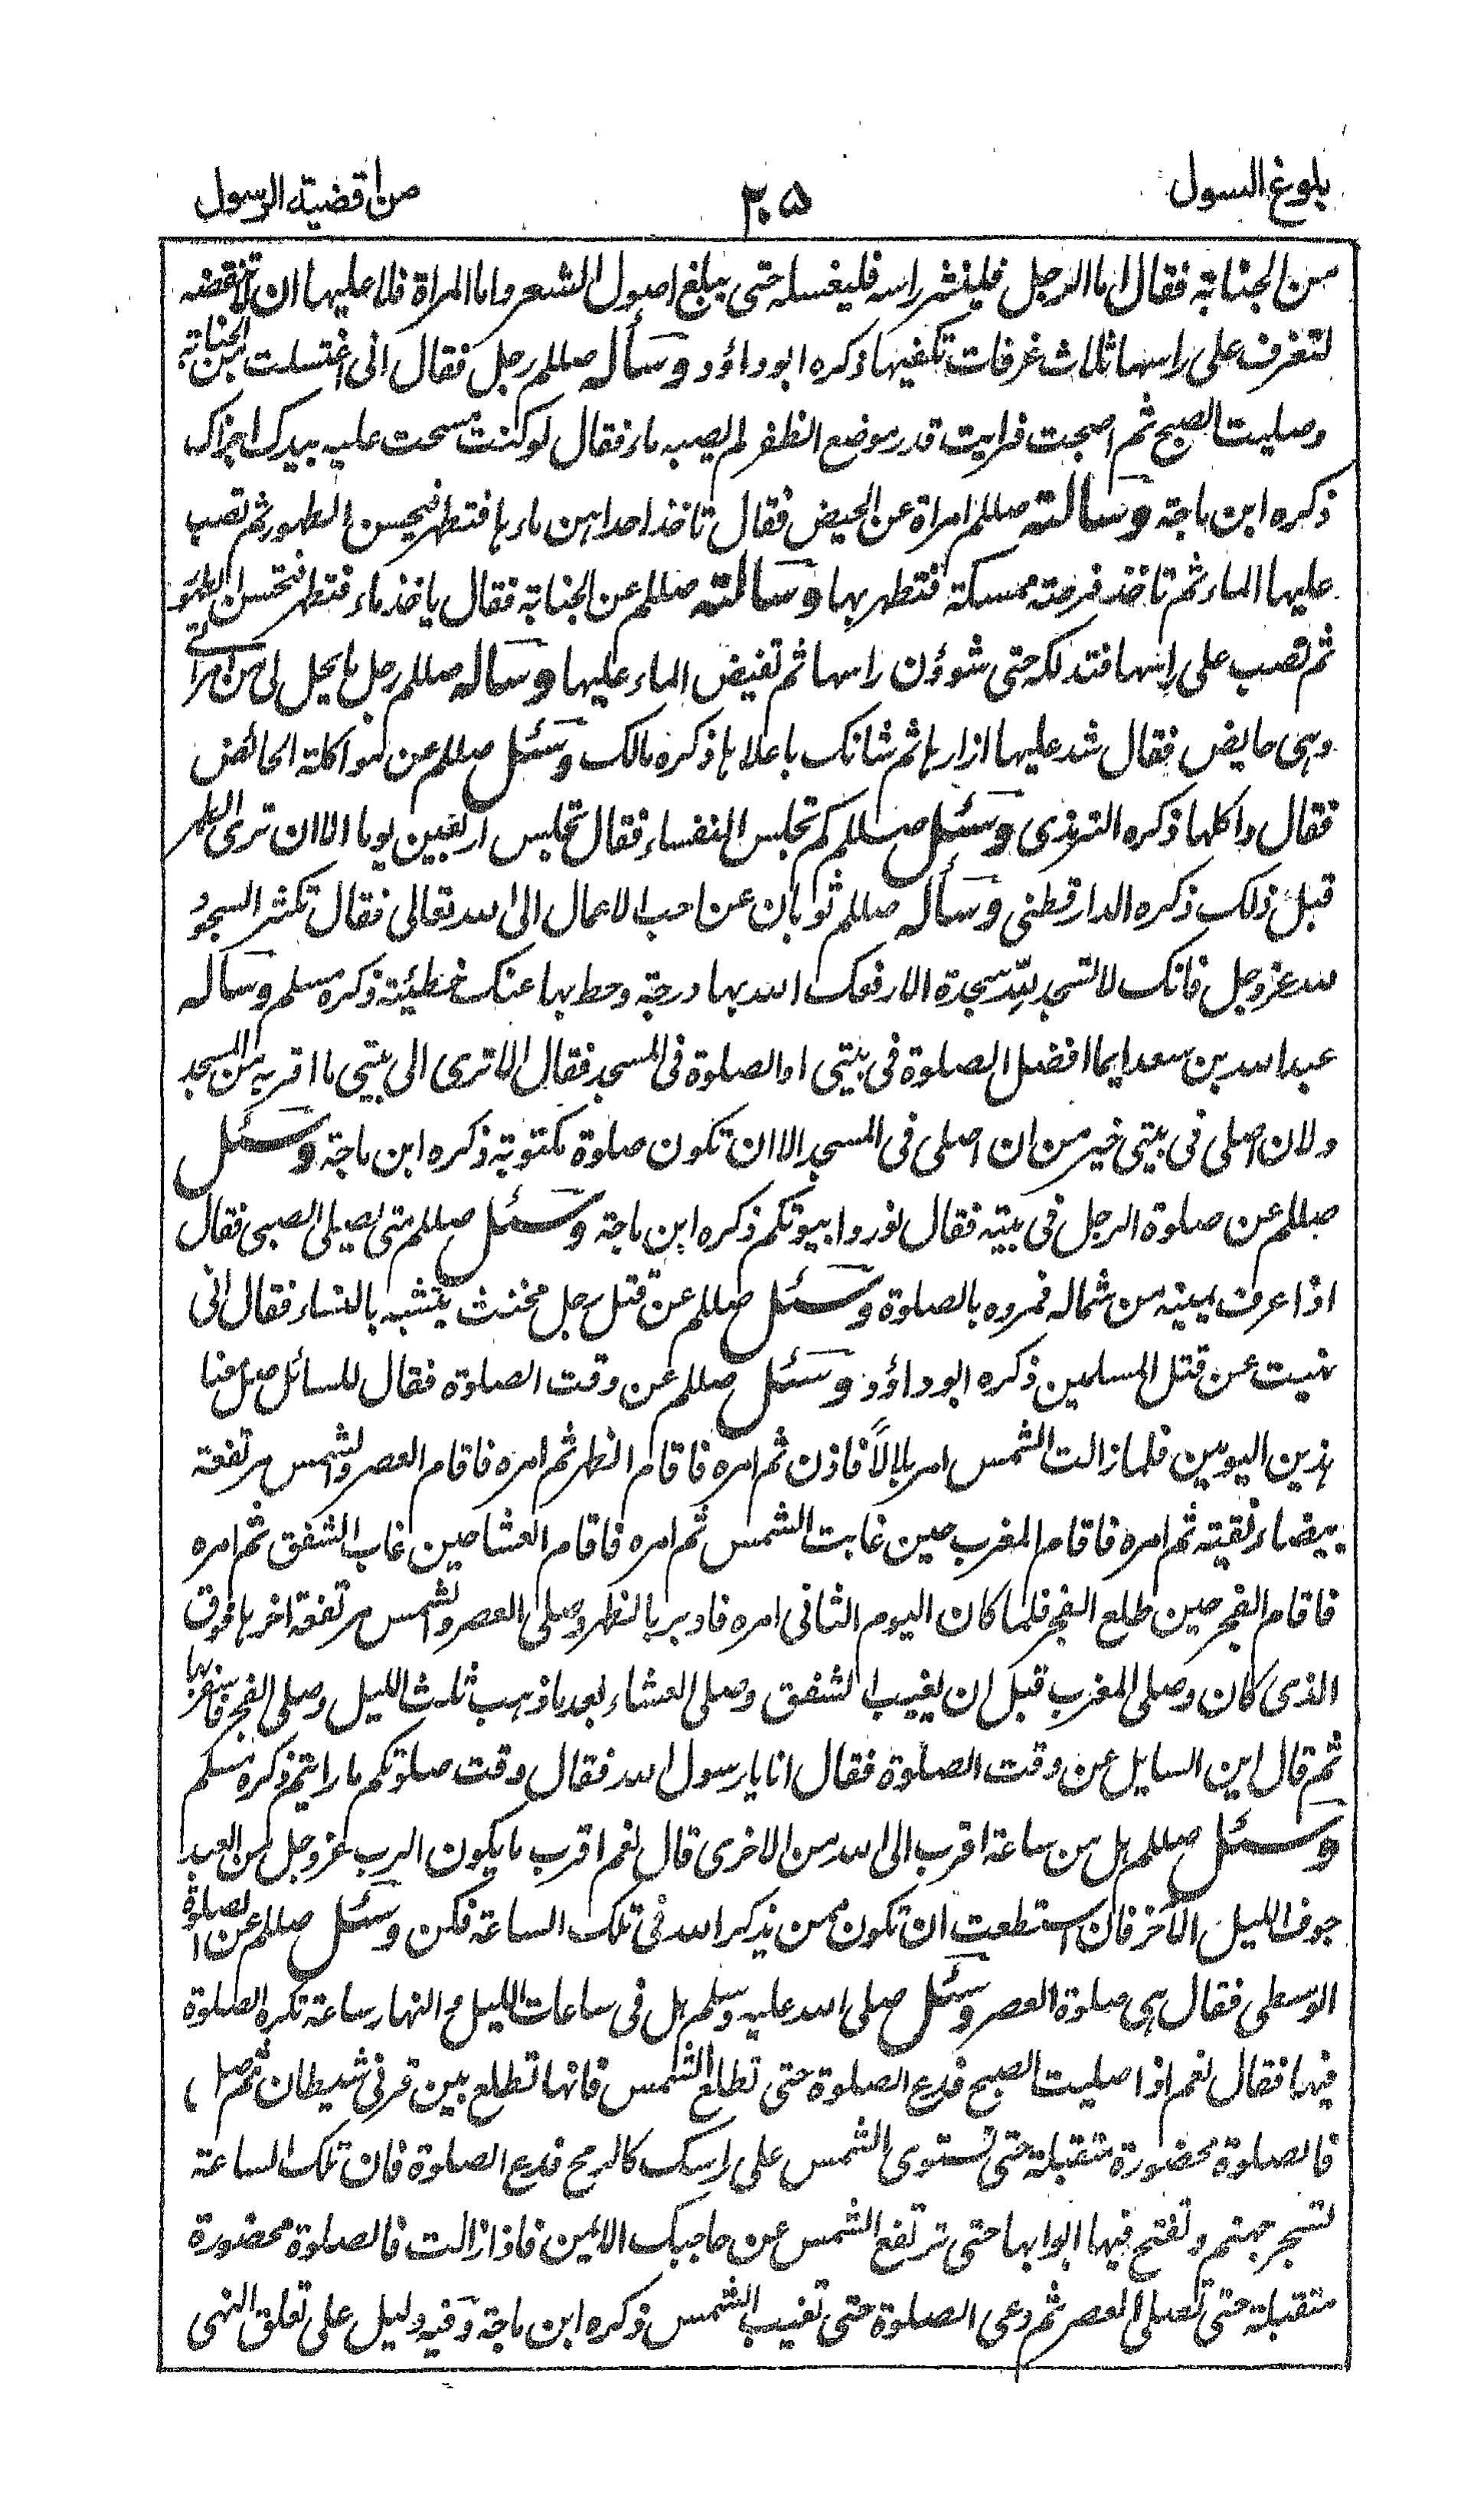 بلوغ السول
٣٠٥
من اقضية الرسول
من الجنابة فقال اما الرجل فلينشر راسه فليغسله حتى يبلغ اصول الشعر واما المراة فلا عليها ان لا تنقضه
لتغرف على راسها ثلاث غرفات تكفيها ذكره ابو داؤد وسأله صللم رجل فقال انى اغتسلت من الجنابة
وصليت الصبح ثم اصبحت فرايت قدر موضع الظفر لم يصبه ماء فقال لو كنت مسحت عليه بيدك اجزاك
ذكره ابن ماجة وسالته صللم امراة عن الحيض فقال تاخذ احداهن ماءها فتطهر فتحسن الطهور ثم تصب
عليها الماء ثم تاخذ فرصته ممسكة فتطهر بها وسالته صللم عن الجنابة فقال ياخذ ماء فتطهر فتحسن الطهور
ثم تصب على راسها فتدلكه حتى شوؤن راسها ثم تفيض الماء عليها وساله صللم رجل ما يحل لى من امراتى
وهى حايض فقال شد عليها ازارها ثم شانك باعلاها ذكره مالك وسئل صللم عن مواكلة الحائض
فقال واكلها ذكره الترمذى وسئل صللم كم تجلس النفساء فقال تجلس اربعين يوما الا ان ترى الطهر
قبل ذلك ذكره الدارقطنى وسأله صللم ثوبان عن احب الاعمال الى الله تعالى فقال تكثر السجود
لله عز وجل فانك لا تسجد لله سجدة الا رفعك الله بها درجة وحط بها عنك خطيئة ذكره مسلم وساله
عبد الله بن سعد ايما افضل الصلوة فى بيتى او الصلوة فى المسجد فقال الا ترى الى بيتى ما اقربه من المسجد
ولان اصلى فى بيتى خير من ان اصلى فى المسجد الا ان تكون صلوة مكتوبة ذكره ابن ماجة وسئل
صللم عن صلوة الرجل فى بيته فقال نوروا بيوتكم ذكره ابن ماجة وسئل صللم متى يصلى الصبى فقال
اذا عرف يمينه من شماله فمروه بالصلوة وسئل صللم عن قتل رجل مخنث يتشبه بالنساء فقال انى
نهيت عن قتل المسلمين ذكره ابو داؤد وسئل صللم عن وقت الصلوة فقال للسائل صل معنا
هذين اليومين فلما زالت الشمس امر بلالاً فاذن ثم امره فاقام الظهر ثم امره فاقام العصر والشمس مرتفعة
بيضاء نقية ثم امره فاقام المغرب حين غابت الشمس ثم امره فاقام العشا حين غاب الشفق ثم امره
فاقام الفجر حين طلع الفجر فلما كان اليوم الثانى امره فابرد بالظهر وصلى العصر والشمس مرتفعة اخرها فوق
الذى كان وصلى المغرب قبل ان يغيب الشفق وصلى العشاء بعد ما ذهب ثلث الليل وصلى الفجر فاسفر بها
ثم قال اين السايل عن وقت الصلوة فقال انا يا رسول الله فقال وقت صلوتكم ما رايتم ذكره مسلم
وسئل صللم هل من ساعة اقرب الى الله من الاخرى قال نعم اقرب ما يكون الرب عز وجل من العبد
جوف الليل الآخر فان استطعت ان تكون ممن يذكر الله فى تلك الساعة فكن وسئل صللم عن الصلوة
الوسطى فقال هى صلوة العصر وسئل صلى الله عليه وسلم هل فى ساعات الليل والنهار ساعة تكره الصلوة
فيها فقال نعم اذا صليت الصبح فدع الصلوة حتى تطلع الشمس فانها تطلع بين قرنى شيطان ثم صل
فالصلوة محضورة متقبلة حتى تستوى الشمس على راسك كالرمح فدع الصلوة فان تلك الساعة
تسجر جهنم وتفتح فيها ابوابها حتى ترتفع الشمس عن حاجبك الايمن فاذا زالت فالصلوة محضورة
متقبلة حتى تصلى العصر ثم دعى الصلوة حتى تغيب الشمس ذكره ابن ماجة وفيه دليل على تعلق النهى